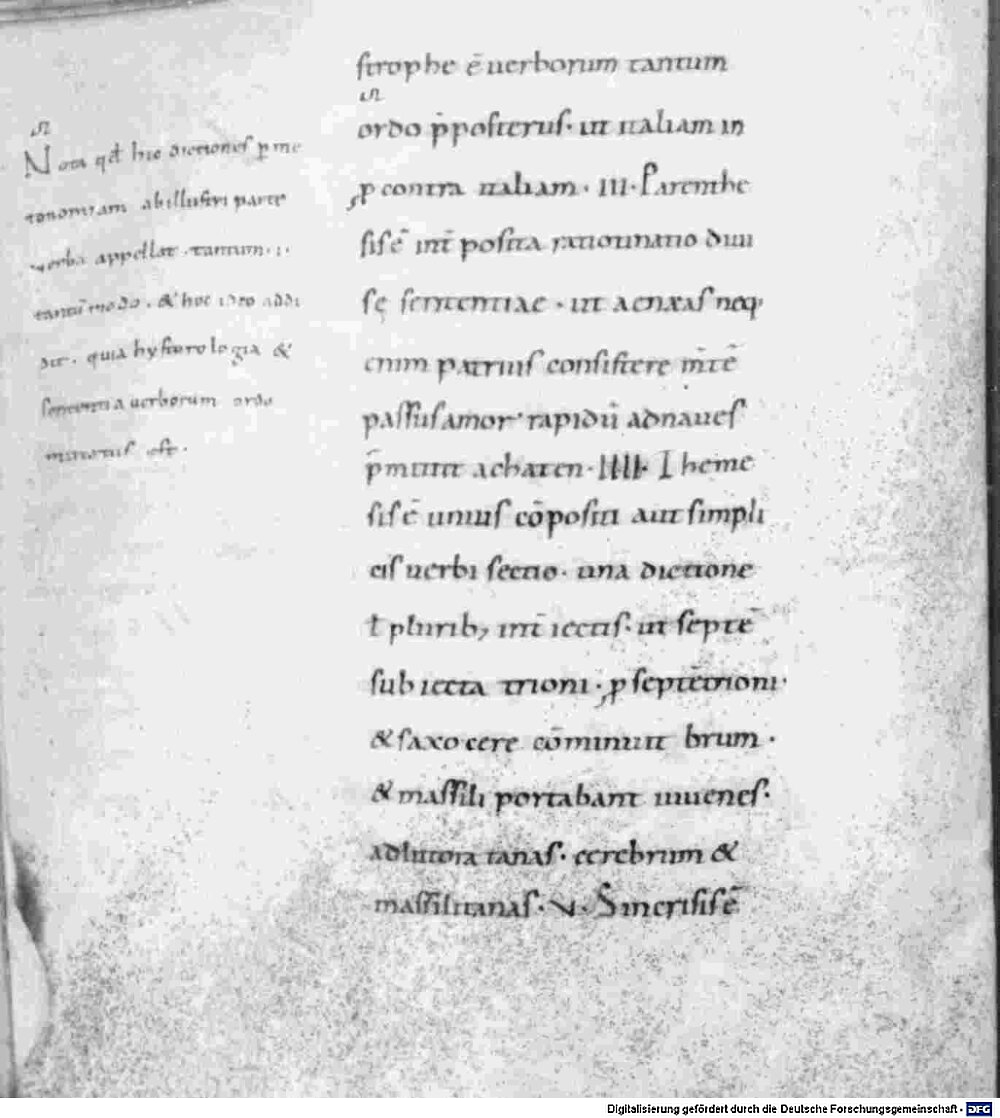 strophe ē uerborum tantum
ordo p̄posterus· ut italiam in
ꝓ contra italiam · III · Parenthe
sis ē int̄ posita ratiotinatio diui
sę sententiae · ut aeneas neq;
enim patrius consistere m̄tē
passus amor· rapidū ad naues
p̄mittit achaten · IIII · Theme
sis ē unius cōpositi aut simpli
cis uerbi sectio · una dictione
ł plurib; int̄ iectis· ut septē
subiecta trioni · ꝓ septētrioni·
& saxo cere cōminuit brum ·
& massili portabant iuuenes·
ad litora tanas · cerebrum &
massilitanas · V · Sincrisis ē
Nota qđ hic dictiones p me
tonomiam ab illustri parte
uerba appellat · tantum · i ·
tantūmodo · & hoc ideo addi
dit · quia hysterologia &
sententia uerborum ordo
est ·
Digitalisierung gefördert durch die Deutsche Forschungsgemeinschaft - DFG